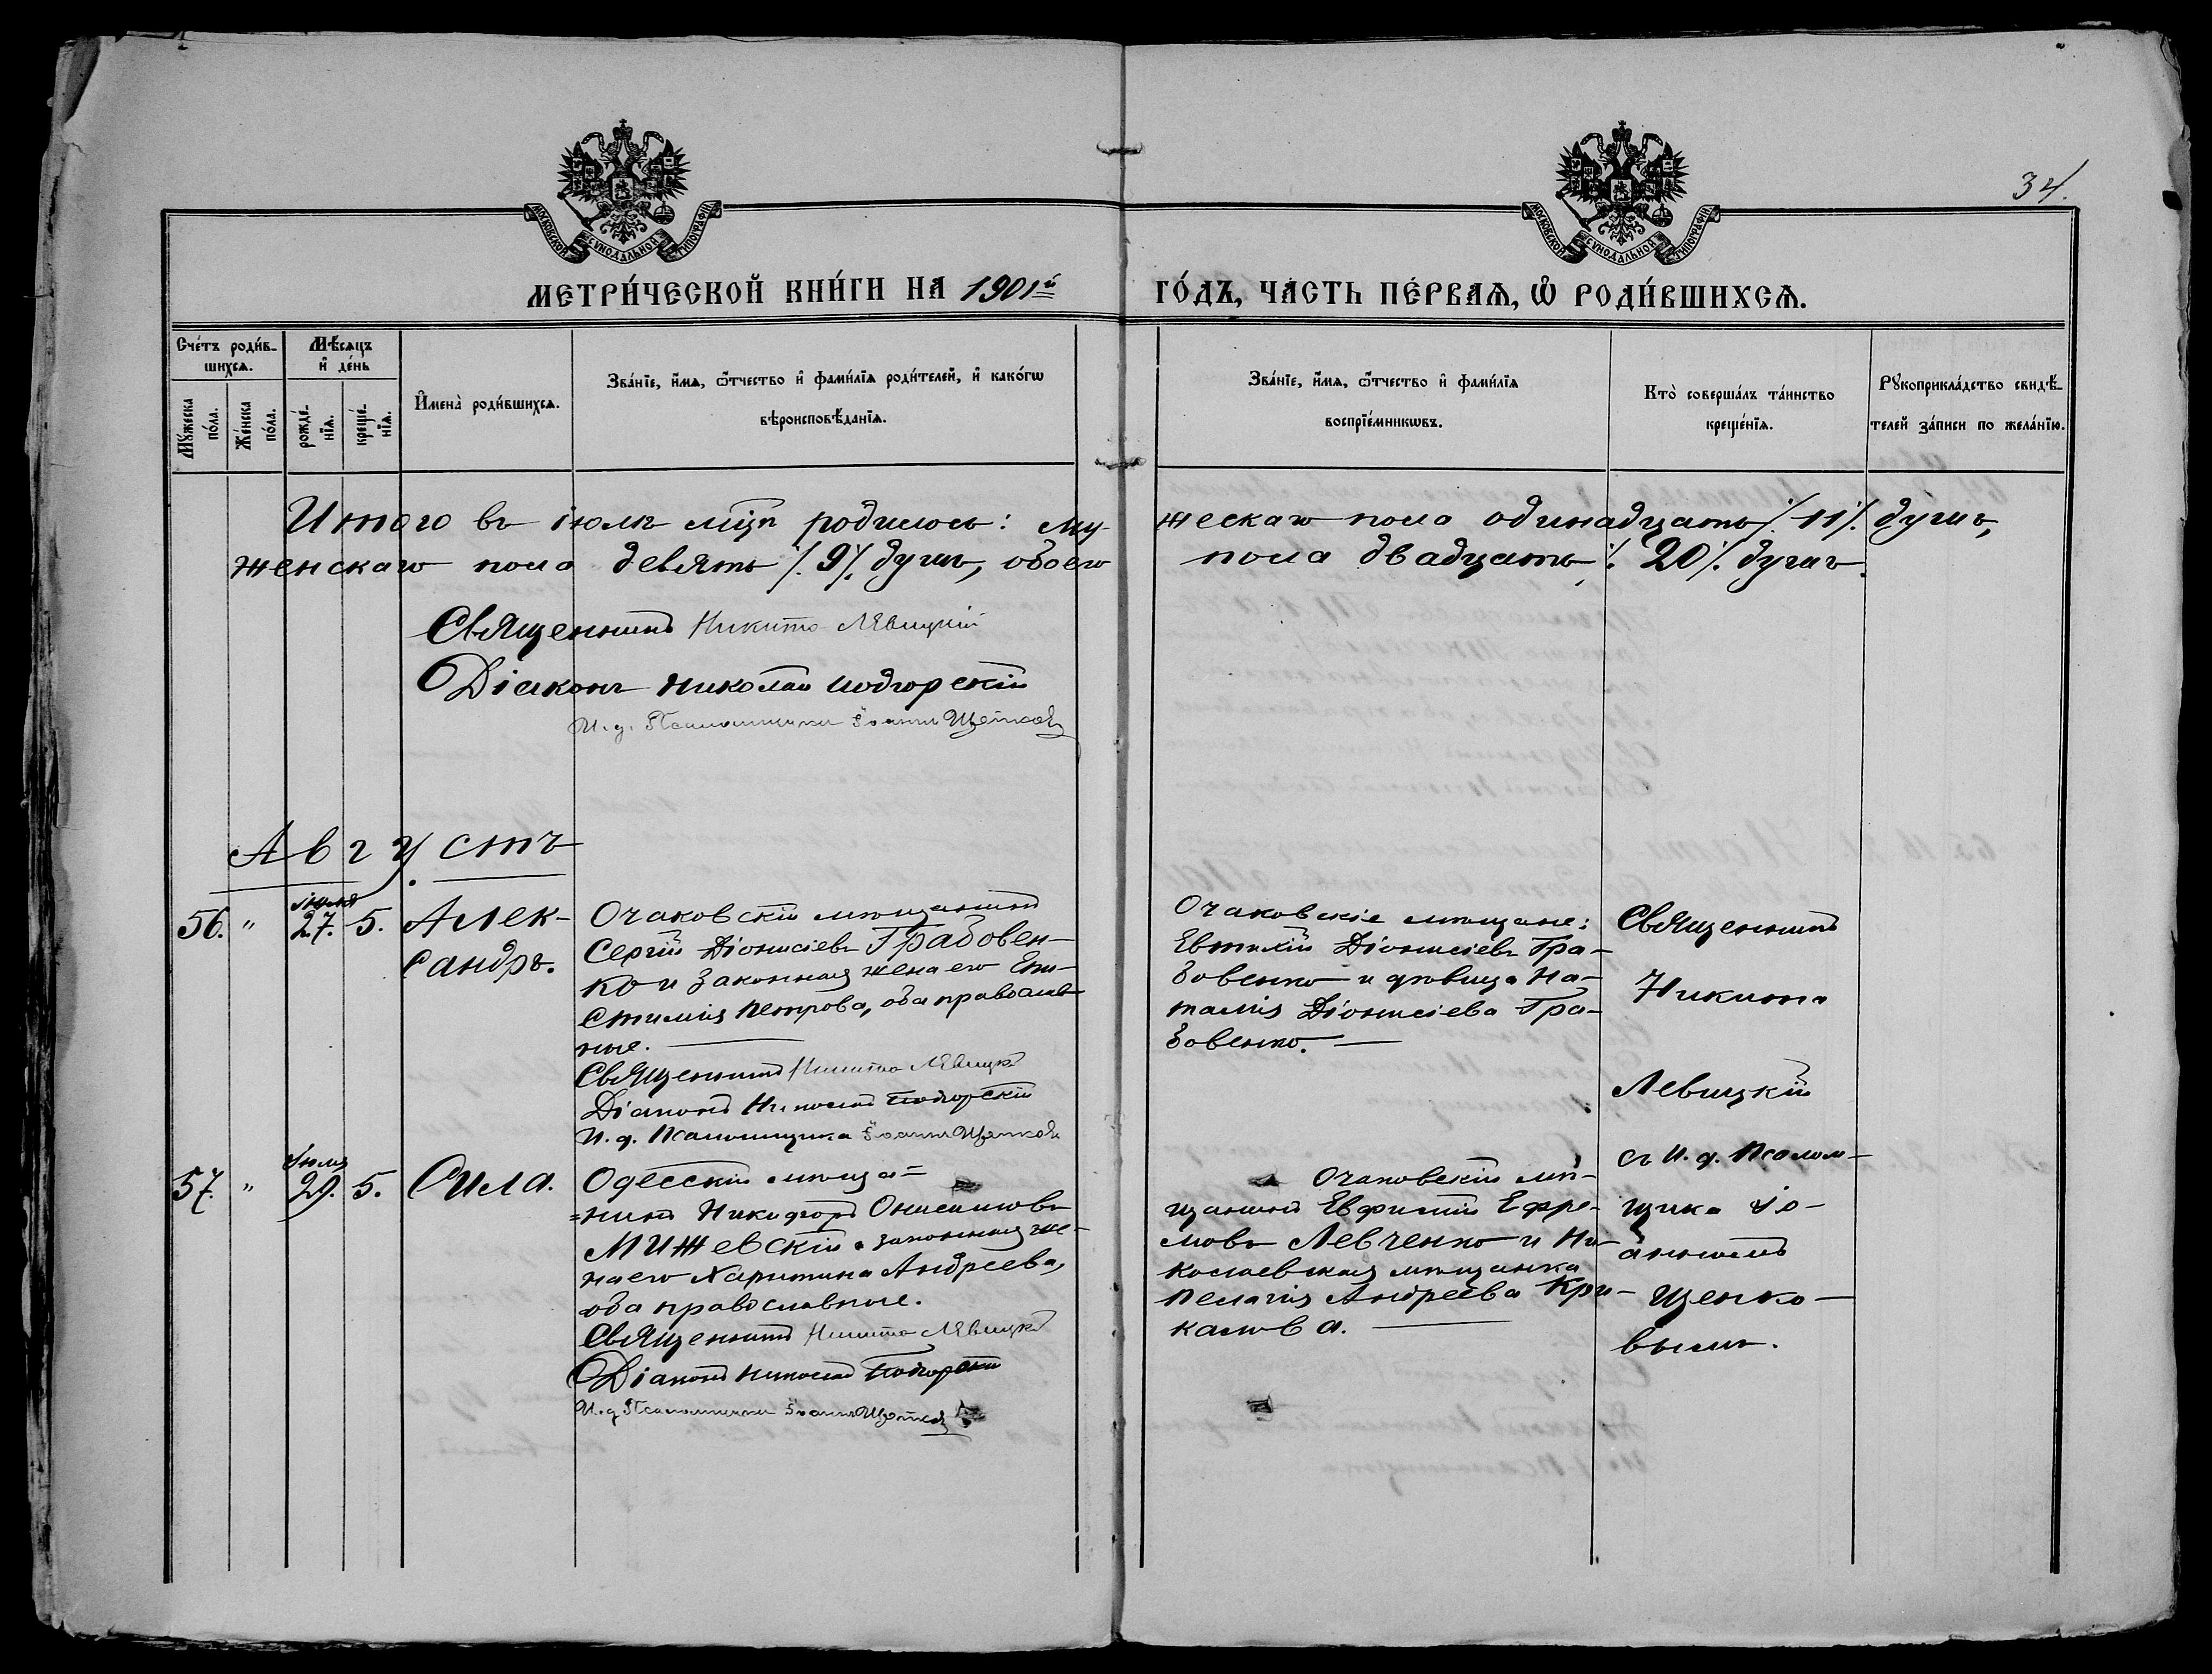 34.
МОСКОВСКОЙ СѴНОДАЛЬНОЙ ТИПОГРАФІИ
МОСКОВСКОЙ СѴНОДАЛЬНОЙ ТИПОГРАФІИ
МЕТРИ́ЧЕСКОЙ КНИ́ГИ НА 1901й ГО́ДЪ, ЧА́СТЬ ПЕ́РВАѦ, Ѽ РОДИ́ВШИХСѦ.
Сче́тъ роди́в-
шихсѧ.
Мꙋ́жеска
по́ла.
Же́нска
по́ла.
Мѣ́сѧцъ
и де́нь
рожде́-
нїѧ.
креще́-
нїѧ.
Имена̀ роди́вшихсѧ.
Зва́нїе, и́мѧ, ѿтчество и фами́лїѧ роди́телей, и како́гѡ
вѣроисповѣ́данїѧ.
Зва́нїе, и́мѧ, ѿтчество и фами́лїѧ
воспрїе́мникѡвъ.
Кто̀ соверша́лъ та́инство
креще́нїѧ.
Рꙋкоприкла́дство свидѣ́-
телей за́писи по жела́нїю.
Итого въ іюлѣ мцѣ родилось: му-
жескаго пола одинадцать /. 11 /. душъ,
женскаго пола девять /. 9 /. душъ, обоего
пола двадцать /. 20 /. душъ.
Священникъ Никита Лѣвицкій
Діаконъ Николай Подгорскій
И. д. Псаломщика Іоаннъ Щепковъ
Августъ
56. " іюля 27. 5. Алек-
сандръ.
Очаковскій мѣщанинъ
Сергій Діонисіевъ Грабовен-
ко и законная жена его Епи-
стимія Петрова, оба православ-
ные.
Священникъ Никита Лѣвицкій
Діаконъ Николай Подгорскій
И. д. Псаломщика Іоаннъ Щепковъ
Очаковскіе мѣщане:
Евтихій Діонисіевъ Гра-
бовенко и дѣвица На-
талія Діонисіева Гра-
бовенко.
Священникъ
Никита
Левицкій
съ И. д. Псалом-
щика Іо-
анномъ
Щепко-
вымъ.
57. " Іюля 29. 5. Сила.
Одесскій мѣща=
=нинъ Никифоръ Онисимовъ
Мижевскій и законная же-
на его Харитина Андреева,
оба православные.
Священникъ Никита Лѣвицкій
Діаконъ Николай Подгорскій
И. д. Псаломщика Іоаннъ Щепковъ
Очаковскій мѣ-
щанинъ Евфимій Ефре-
мовъ Левченко и Ни-
колаевская мѣщанка
Пелагія Андреева Кри-
калова.